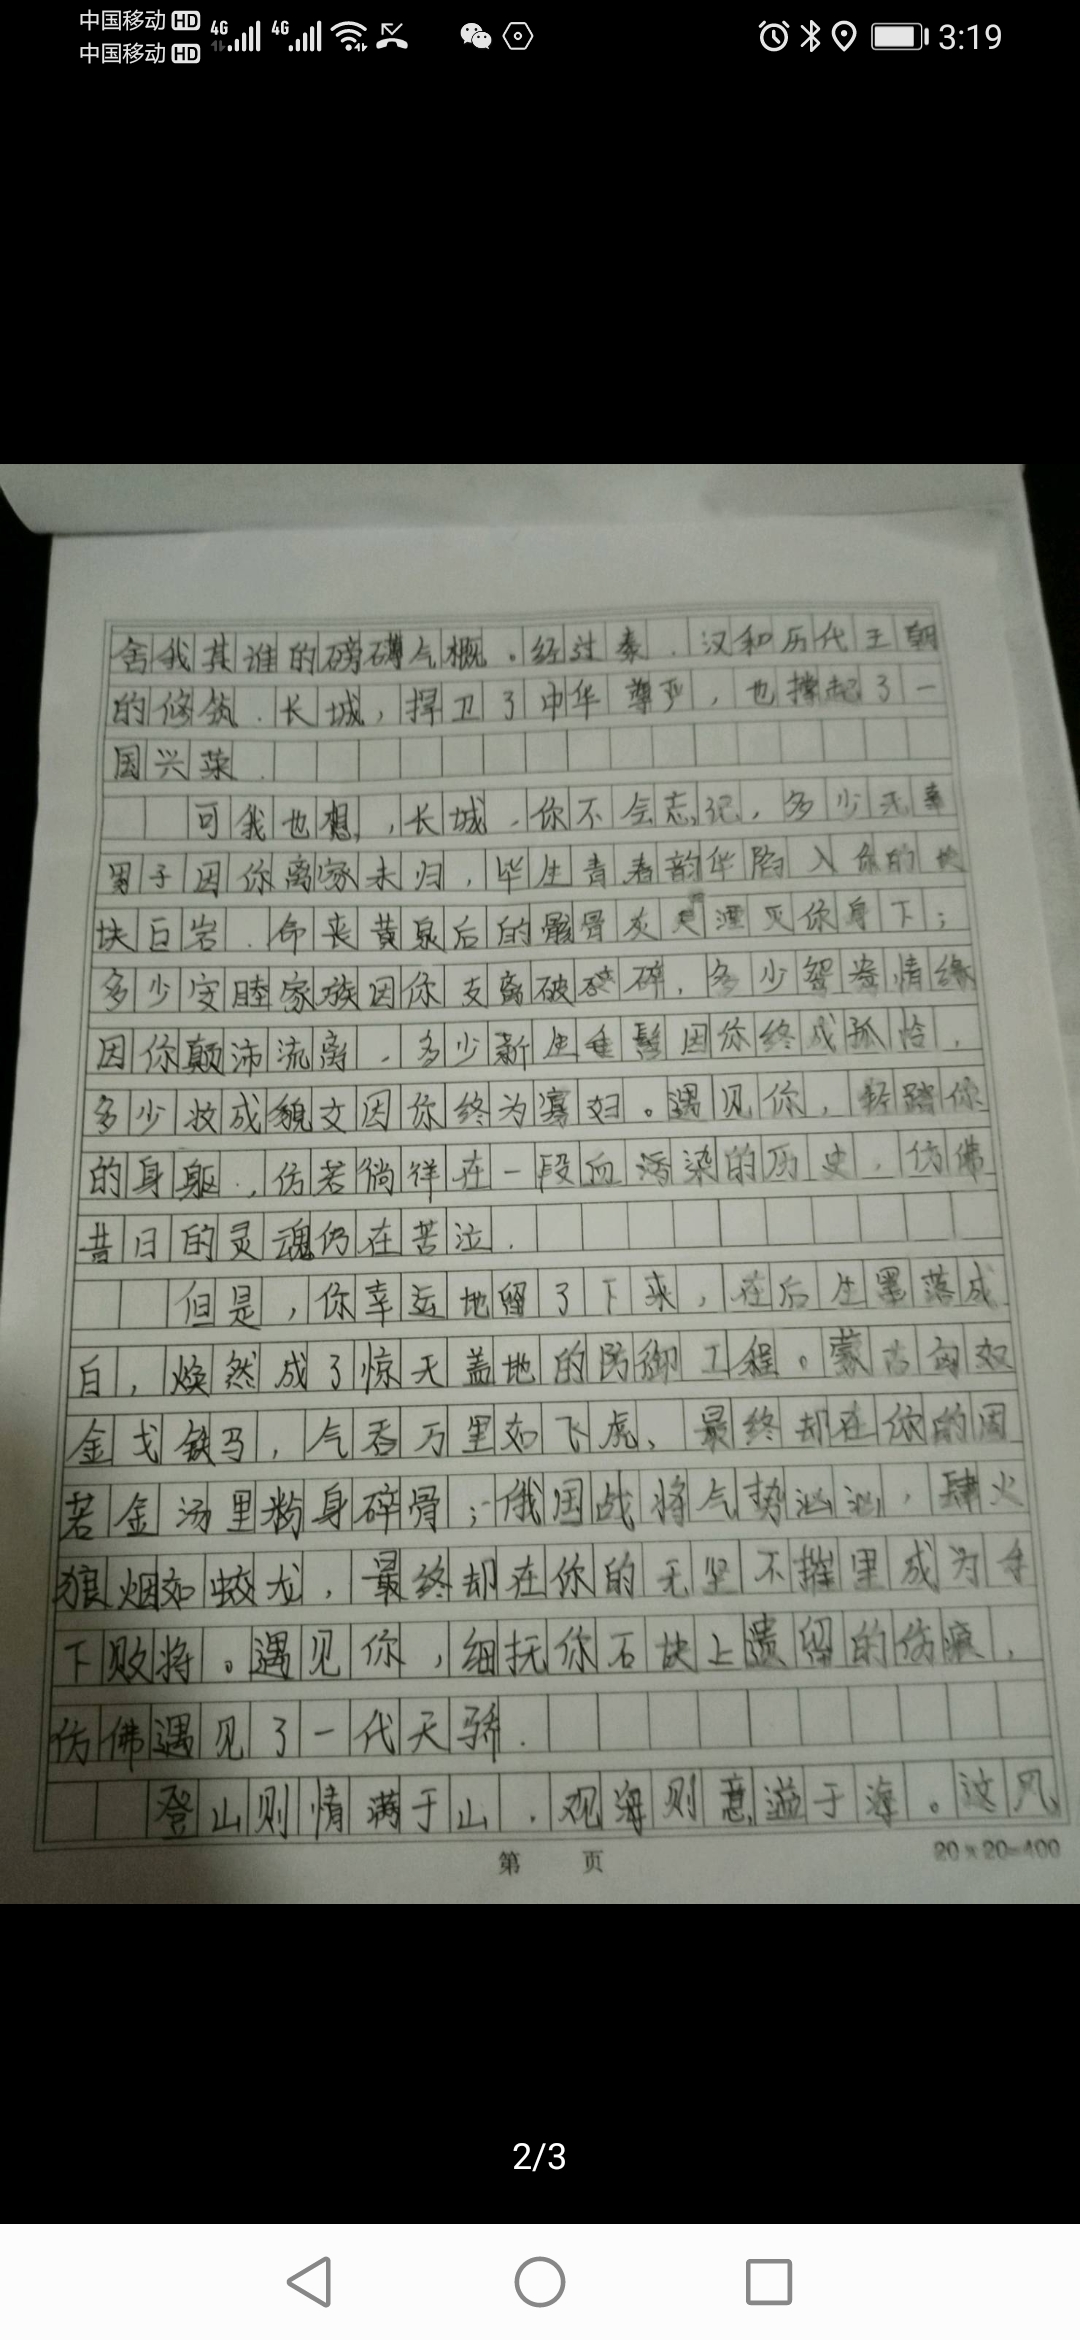 中国移动 HD 4G 4G 3:19
中国移动 HD
舍我其谁的磅礴气概。经过秦、汉和历代王朝
的修筑、长城,捍卫了中华尊严,也撑起了一
国兴荣.
可我也想,长城,你不会忘记,多少无辜
男子因你离家未归,毕生青春韵华陷入你的块
块巨岩.命丧黄泉后的骸骨灰湮灭你身下;
多少安睦家族因你支离破碎,多少鸳鸯情缘
因你颠沛流离,多少新生垂髫因你终成孤怆,
多少妆成貌文因你终为寡妇。遇见你,轻踏你
的身躯,仿若徜徉在一段血污染的历史,仿佛
昔日的灵魂仍在苦泣.
但是,你幸运地留了下来,在后生墨落成
白,焕然成了惊天盖地的防御工程。蒙古匈奴
金戈铁马,气吞万里如飞虎、最终却在你的固
若金汤里粉身碎骨;俄国战将气势汹汹,肆火
狼烟如蛟龙,最终却在你的无坚不摧里成为手
下败将。遇见你,细抚你石块上遗留的伤痕,
仿佛遇见了一代天骄.
登山则情满于山,观海则意溢于海。这风
第 页
20×20=400
2/3